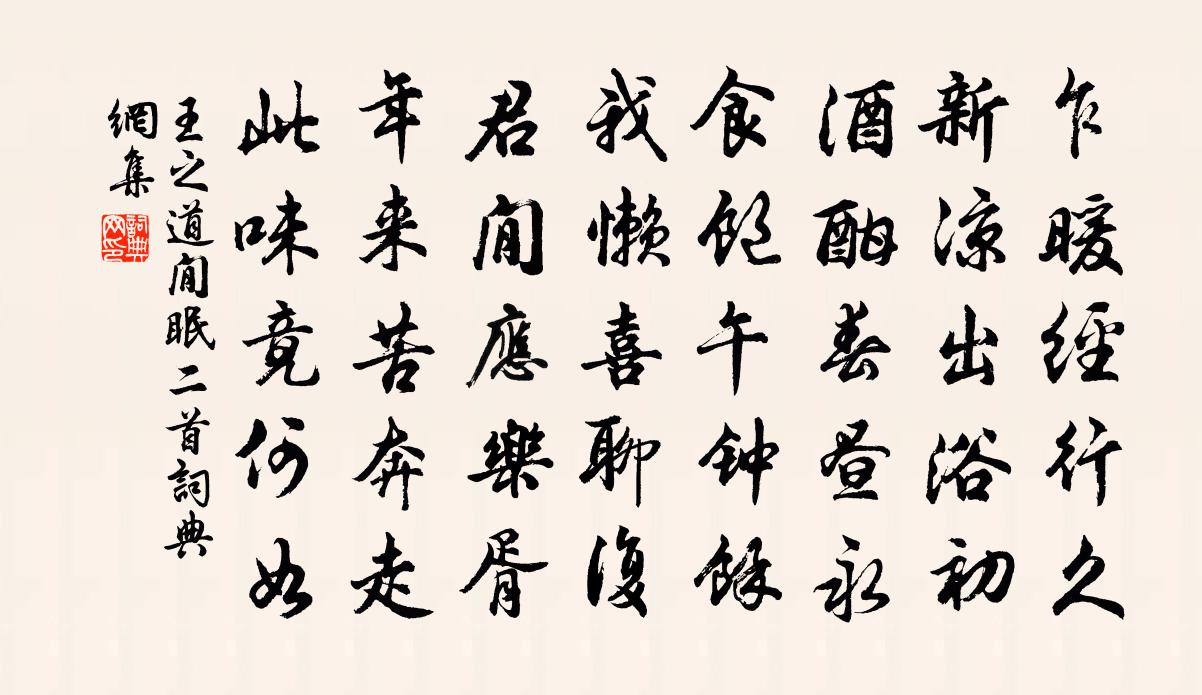 乍暖經行久
新涼出浴初
酒酣春晝永
食飽午钟餘
我懶喜聊復
君閒應樂胥
年来苦奔走
此味竟何如
王之道閒眠二首詞典
網集
詞典網印